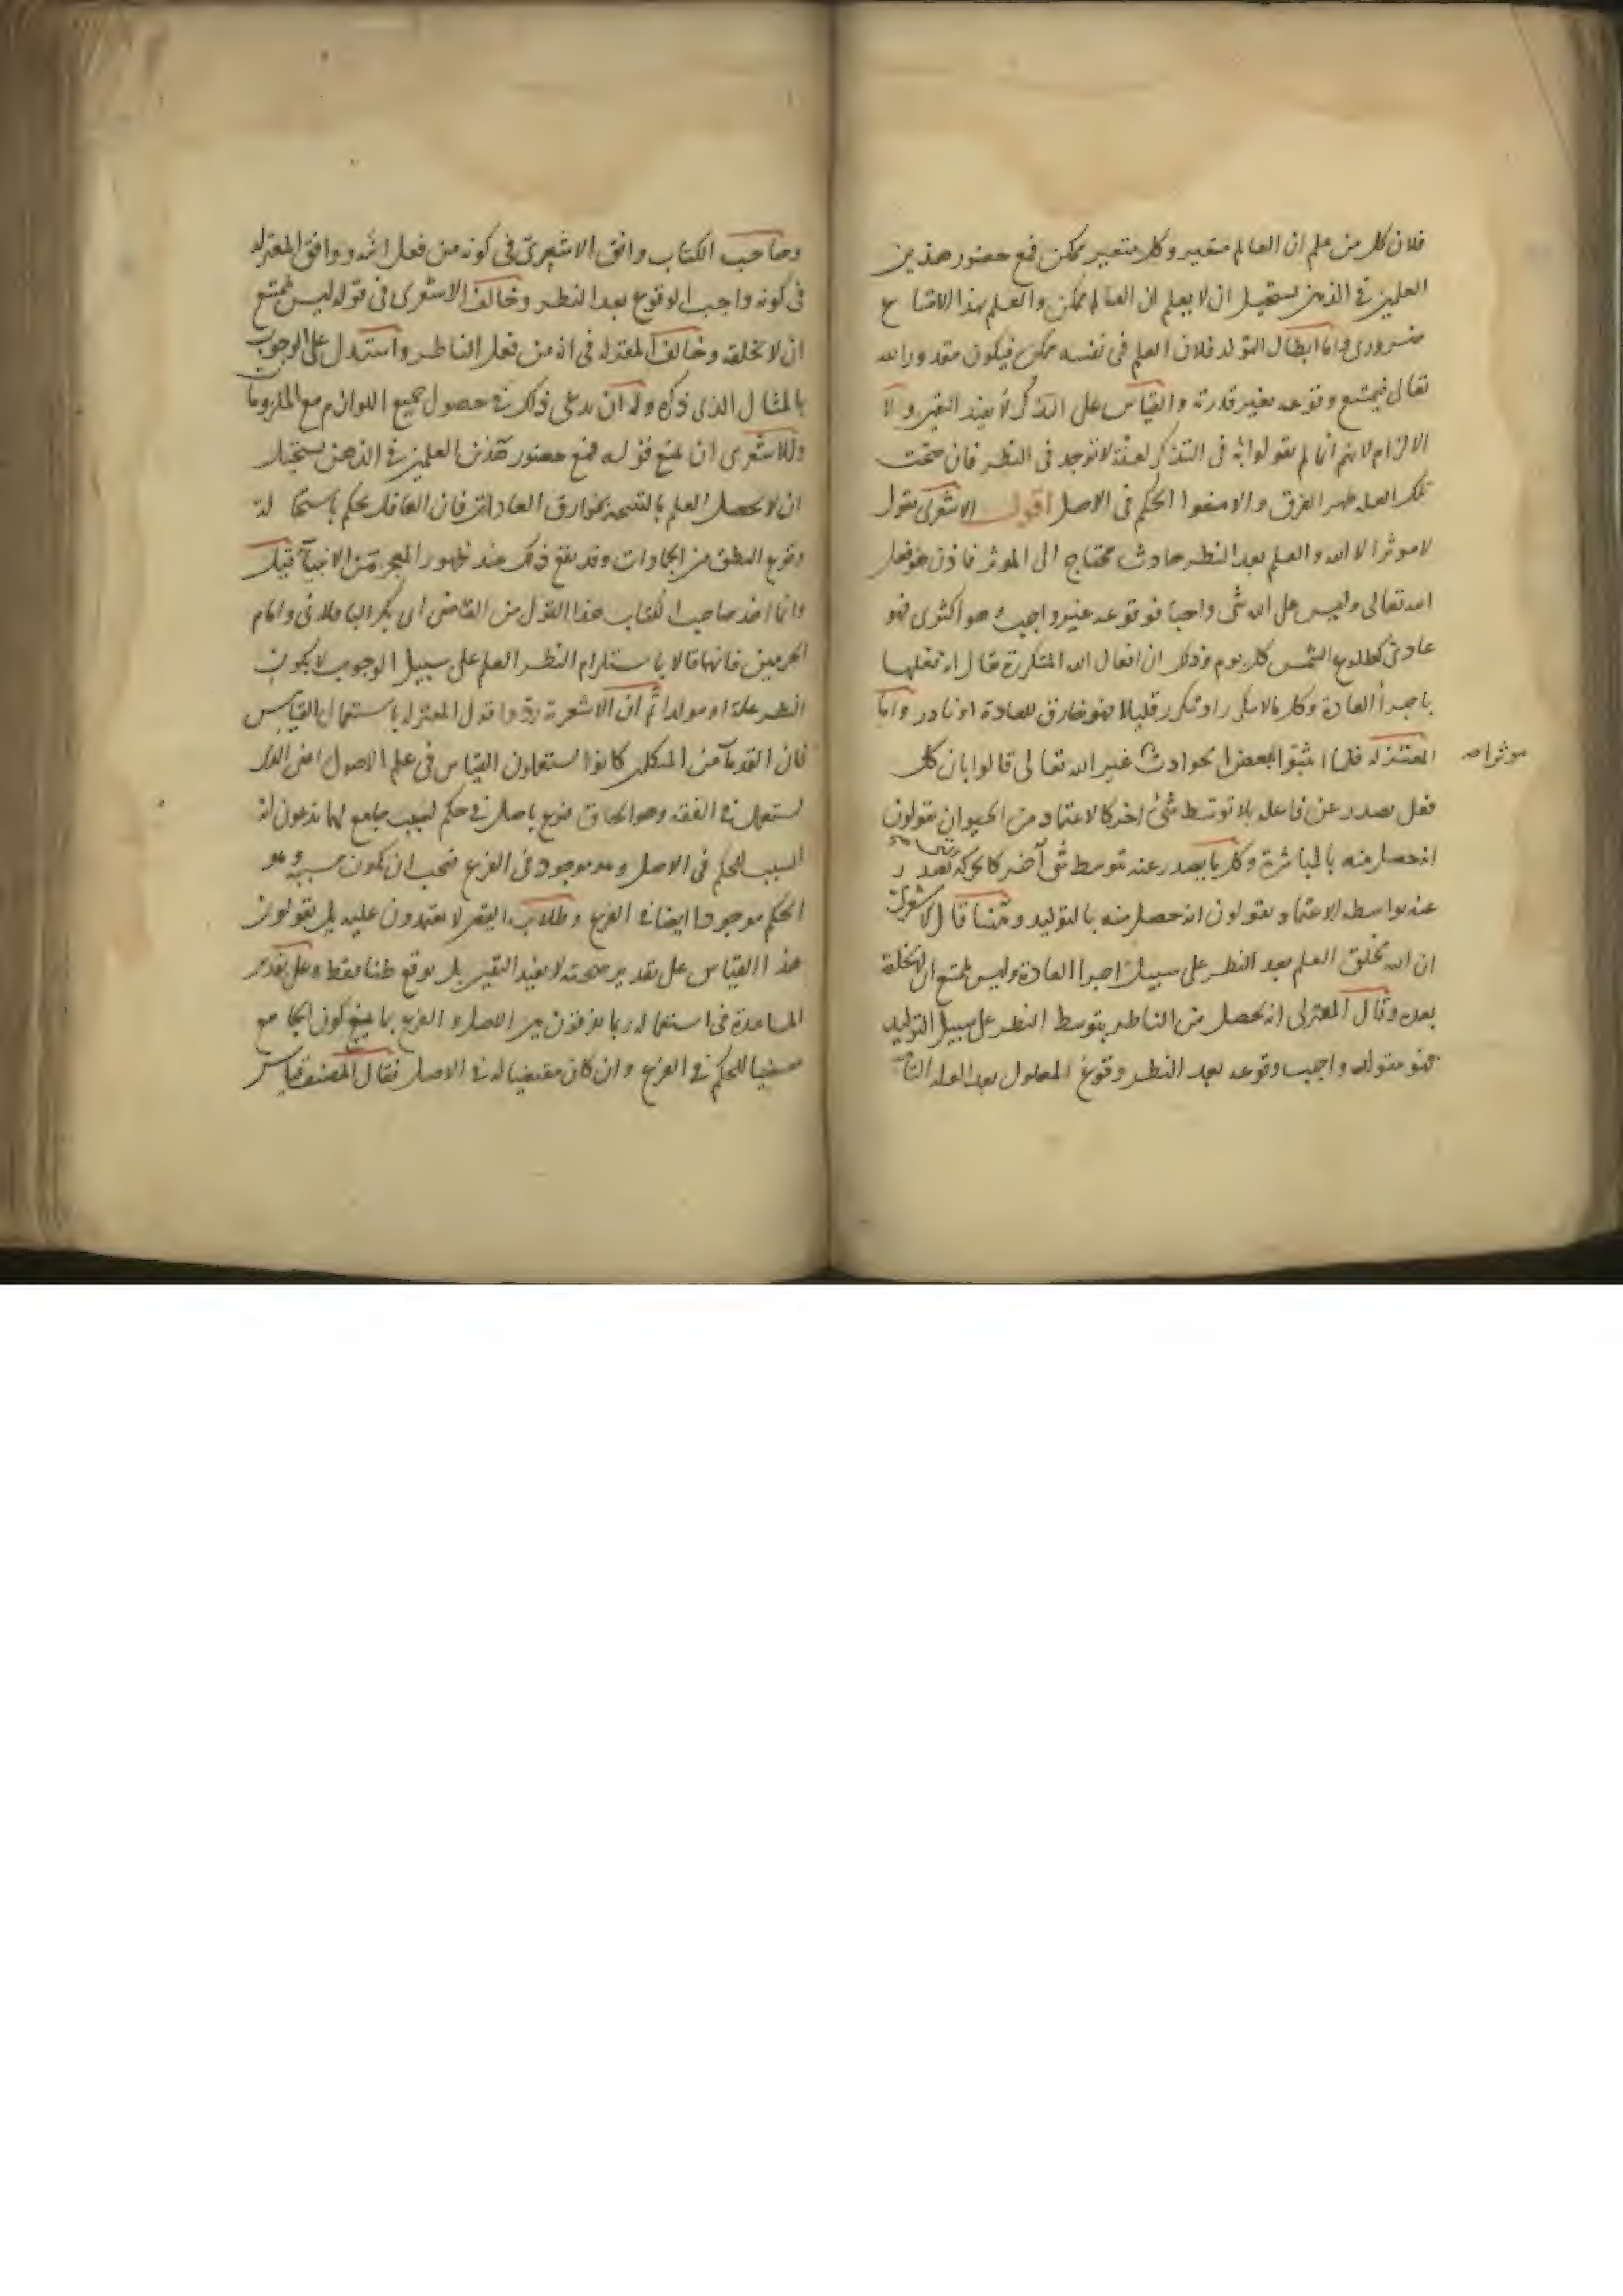 فلان كل من علم ان العالم متغير وكل متغير ممكن فمع حضور هذين
العلمين في الذهن يستحيل ان لا يعلم ان العالم ممكن والعلم بهذا الامتناع
ضروري واما ابطال التولد فلان العلم في نفسه ممكن فيكون مقدورا لله
تعالى فيمتنع وقوعه بغير قدرته والقياس على التذكر لا يفيد اليقين ولا
الالزام لانهم انما لم يقولوا به في التذكر لعلة لا توجد في النظر فان صحت
تلك العلة ظهر الفرق والا منعوا الحكم في الاصل اقول الاشعري يقول
لا موثر الا الله والعلم بعد النظر حادث محتاج الى الموثر فاذن هو فعل
الله تعالى وليس على الله شي واجبا فوقوعه غير واجب هو اكثري فهو
عادي كطلوع الشمس كل يوم وذلك ان افعال الله المتكررة يقال انه فعلها
باجراء العادة وكل ما لا يتكرر او يتكرر قليلا فهو خارق للعادة او نادر واما
المعتزله فلما اثبتوا لبعض الحوادث غير الله تعالى قالوا بان كل
موثرا
فعل يصدر عن فاعله بلا توسط شئ اخر كالاعتماد من الحيوان يقولون
انه حصل منه بالمباشرة وكل ما يصدر عنه بتوسط شي آخر كالحركة تصدر
عنه بواسطه الاعتماد يقولون انه حصل منه بالتوليد وههنا قال الاشعري
ان الله يخلق العلم بعد النظر على سبيل اجرا العادة وليس يمتنع ان لا يخلقه
بعده وقال المعتزلى انه يحصل من الناظر بتوسط النظر على سبيل التوليد
فهو متولد واجب وقوعه بعد النظر وقوع المعلول بعد العله التامة
وصاحب الكتاب وافق الاشعري في كونه من فعل الله ووافق المعتزله
في كونه واجب الوقوع بعد النظر وخالف الاشعرى في قوله ليس يمتنع
ان لا يخلقه وخالف المعتزله في انه من فعل الناظر واستدل على الوجوب
بالمثال الذى ذكره وله ان يدعى ذلك في حصول جميع اللوازم مع الملزومات
وللاشعرى ان يمنع قوله فمع حضور هذين العلمين في الذهن يستحيل
ان لا يحصل العلم بالنتيجة بخوارق العادات فان العاقل يحكم باستحالة
وقوع النطق من الجمادات وقد يقع ذلك عند ظهور المعجز من الانبيآ قيل
وانما اخذ صاحب الكتاب هذا القول من القاضي ابي بكر الباقلاني وامام
الحرمين فانهما قالا باستلزام النظر العلم على سبيل الوجوب لا بكون
النظر علة او مولدا ثم ان الاشعرية ردوا قول المعتزله باستعمال القياس
فان القدمآ من المتكلمين كانوا يستعملون القياس في علم الاصول اعني الذى
يستعمل في الفقه وهو الحاق فرع باصل في حكم لسبب جامع لهما يدعون انه
السبب للحكم في الاصل وهو موجود في الفرع فيجب ان يكون مسببه وهو
الحكم موجودا ايضا في الفرع وطلاب اليقين لا يعتمدون عليه بل يقولون
هذا القياس على تقدير صحته لا يفيد اليقين بل يوقع ظنا فقط وعلى تقدير
المساعدة في استعماله ربما يفرقون بين الاصل والفرع بما يمنع كون الجامع
مقتضيا للحكم في الفرع وان كان مقتضيا له في الاصل فقال المصنف قياس